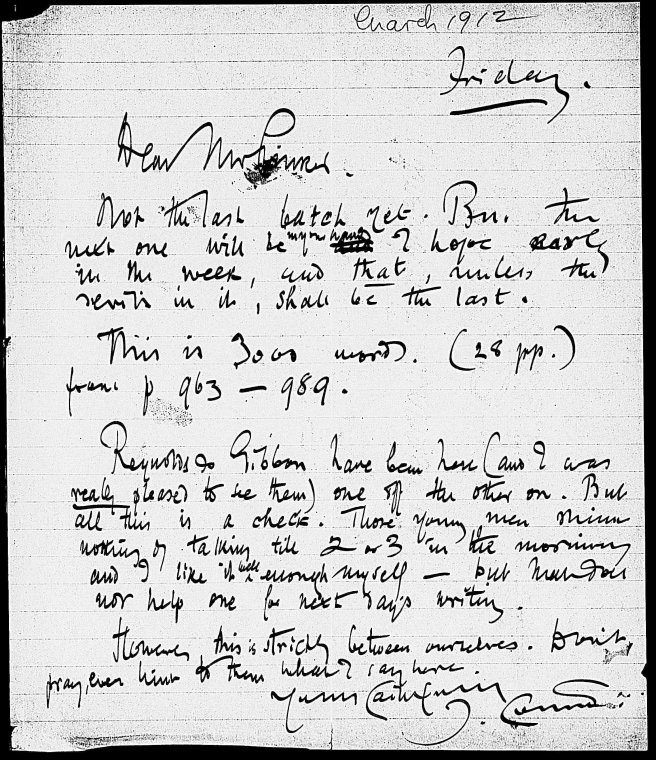 March 1912
Friday.
Dear Mr Pinker.
Not the last batch yet. But the
next one will be my own I hope early
in the week, and that, unless the
devil's in it, shall be the last.
This is 3000 words. (28 pp.)
from p 963 — 989.
Reynolds & Gibbon have been here (and I was
really pleased to see them) one off the other on. But
all this is a check. Those young men think
nothing of talking till 2 or 3 in the morning
and I like it well enough myself — but that does
not help one for next day's writing.
However, this is strictly between ourselves. Don't,
pray, ever hint to them what I say here.
Yours
J. Conrad